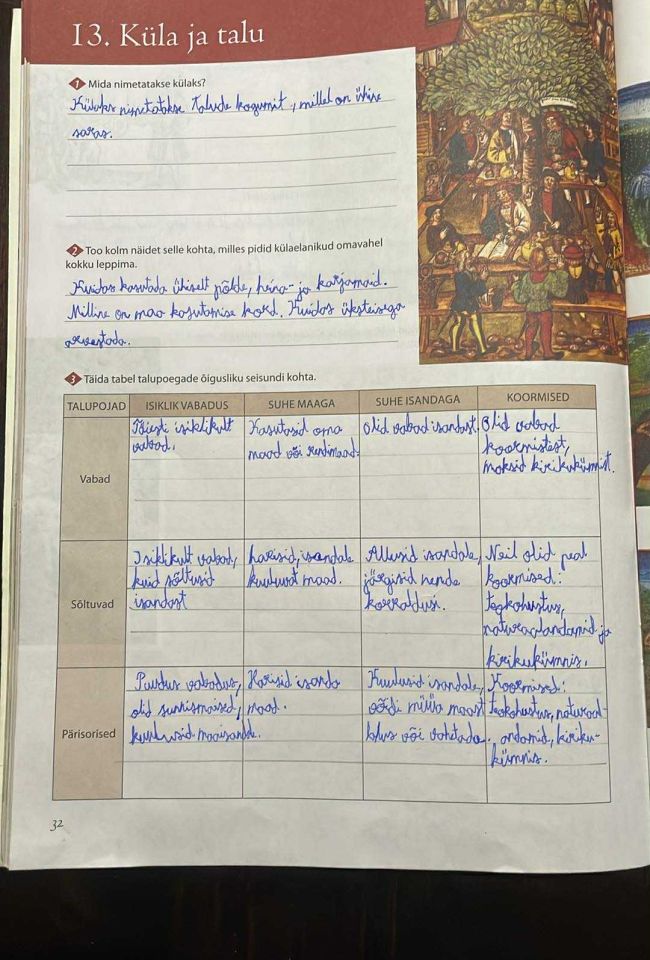 13. Küla ja talu
1 Mida nimetatakse külaks?
Külaks nimetatakse talude kogumit, millel on ühine
saras.
2 Too kolm näidet selle kohta, milles pidid külaelanikud omavahel
kokku leppima.
Kuidas kasutada ühiselt põlde, heina- ja karjamaid.
Milline on maa kasutamise kord. Kuidas üksteisega
arvestada.
3 Täida tabel talupoegade õigusliku seisundi kohta.
TALUPOJAD ISIKLIK VABADUS SUHE MAAGA SUHE ISANDAGA KOORMISED
Vabad
Täiesti isiklikult
vabad.
Kasutasid oma
maad või rendimaad.
Olid vabad isandast.
Olid vabad
koormistest,
maksid kirikukümnist.
Sõltuvad
Isiklikult vabad,
kuid sõltusid
isandast
harisid, isandale
kuuluvat maad.
Allusid isandale,
järgisid nende
korraldusi.
Neil olid peal
koormised:
teokohustus,
naturaalandamid ja
kirikukümnis.
Pärisorised
Puudus vabadus,
olid sunnismaised,
kuulusid maaisandale.
Harisid isanda
maad.
Kuulusid isandale,
võidi müüa maast
lahus või vahetada.
Koormised:
teokohustus, naturaal-
andamid, kiriku-
kümnis.
32